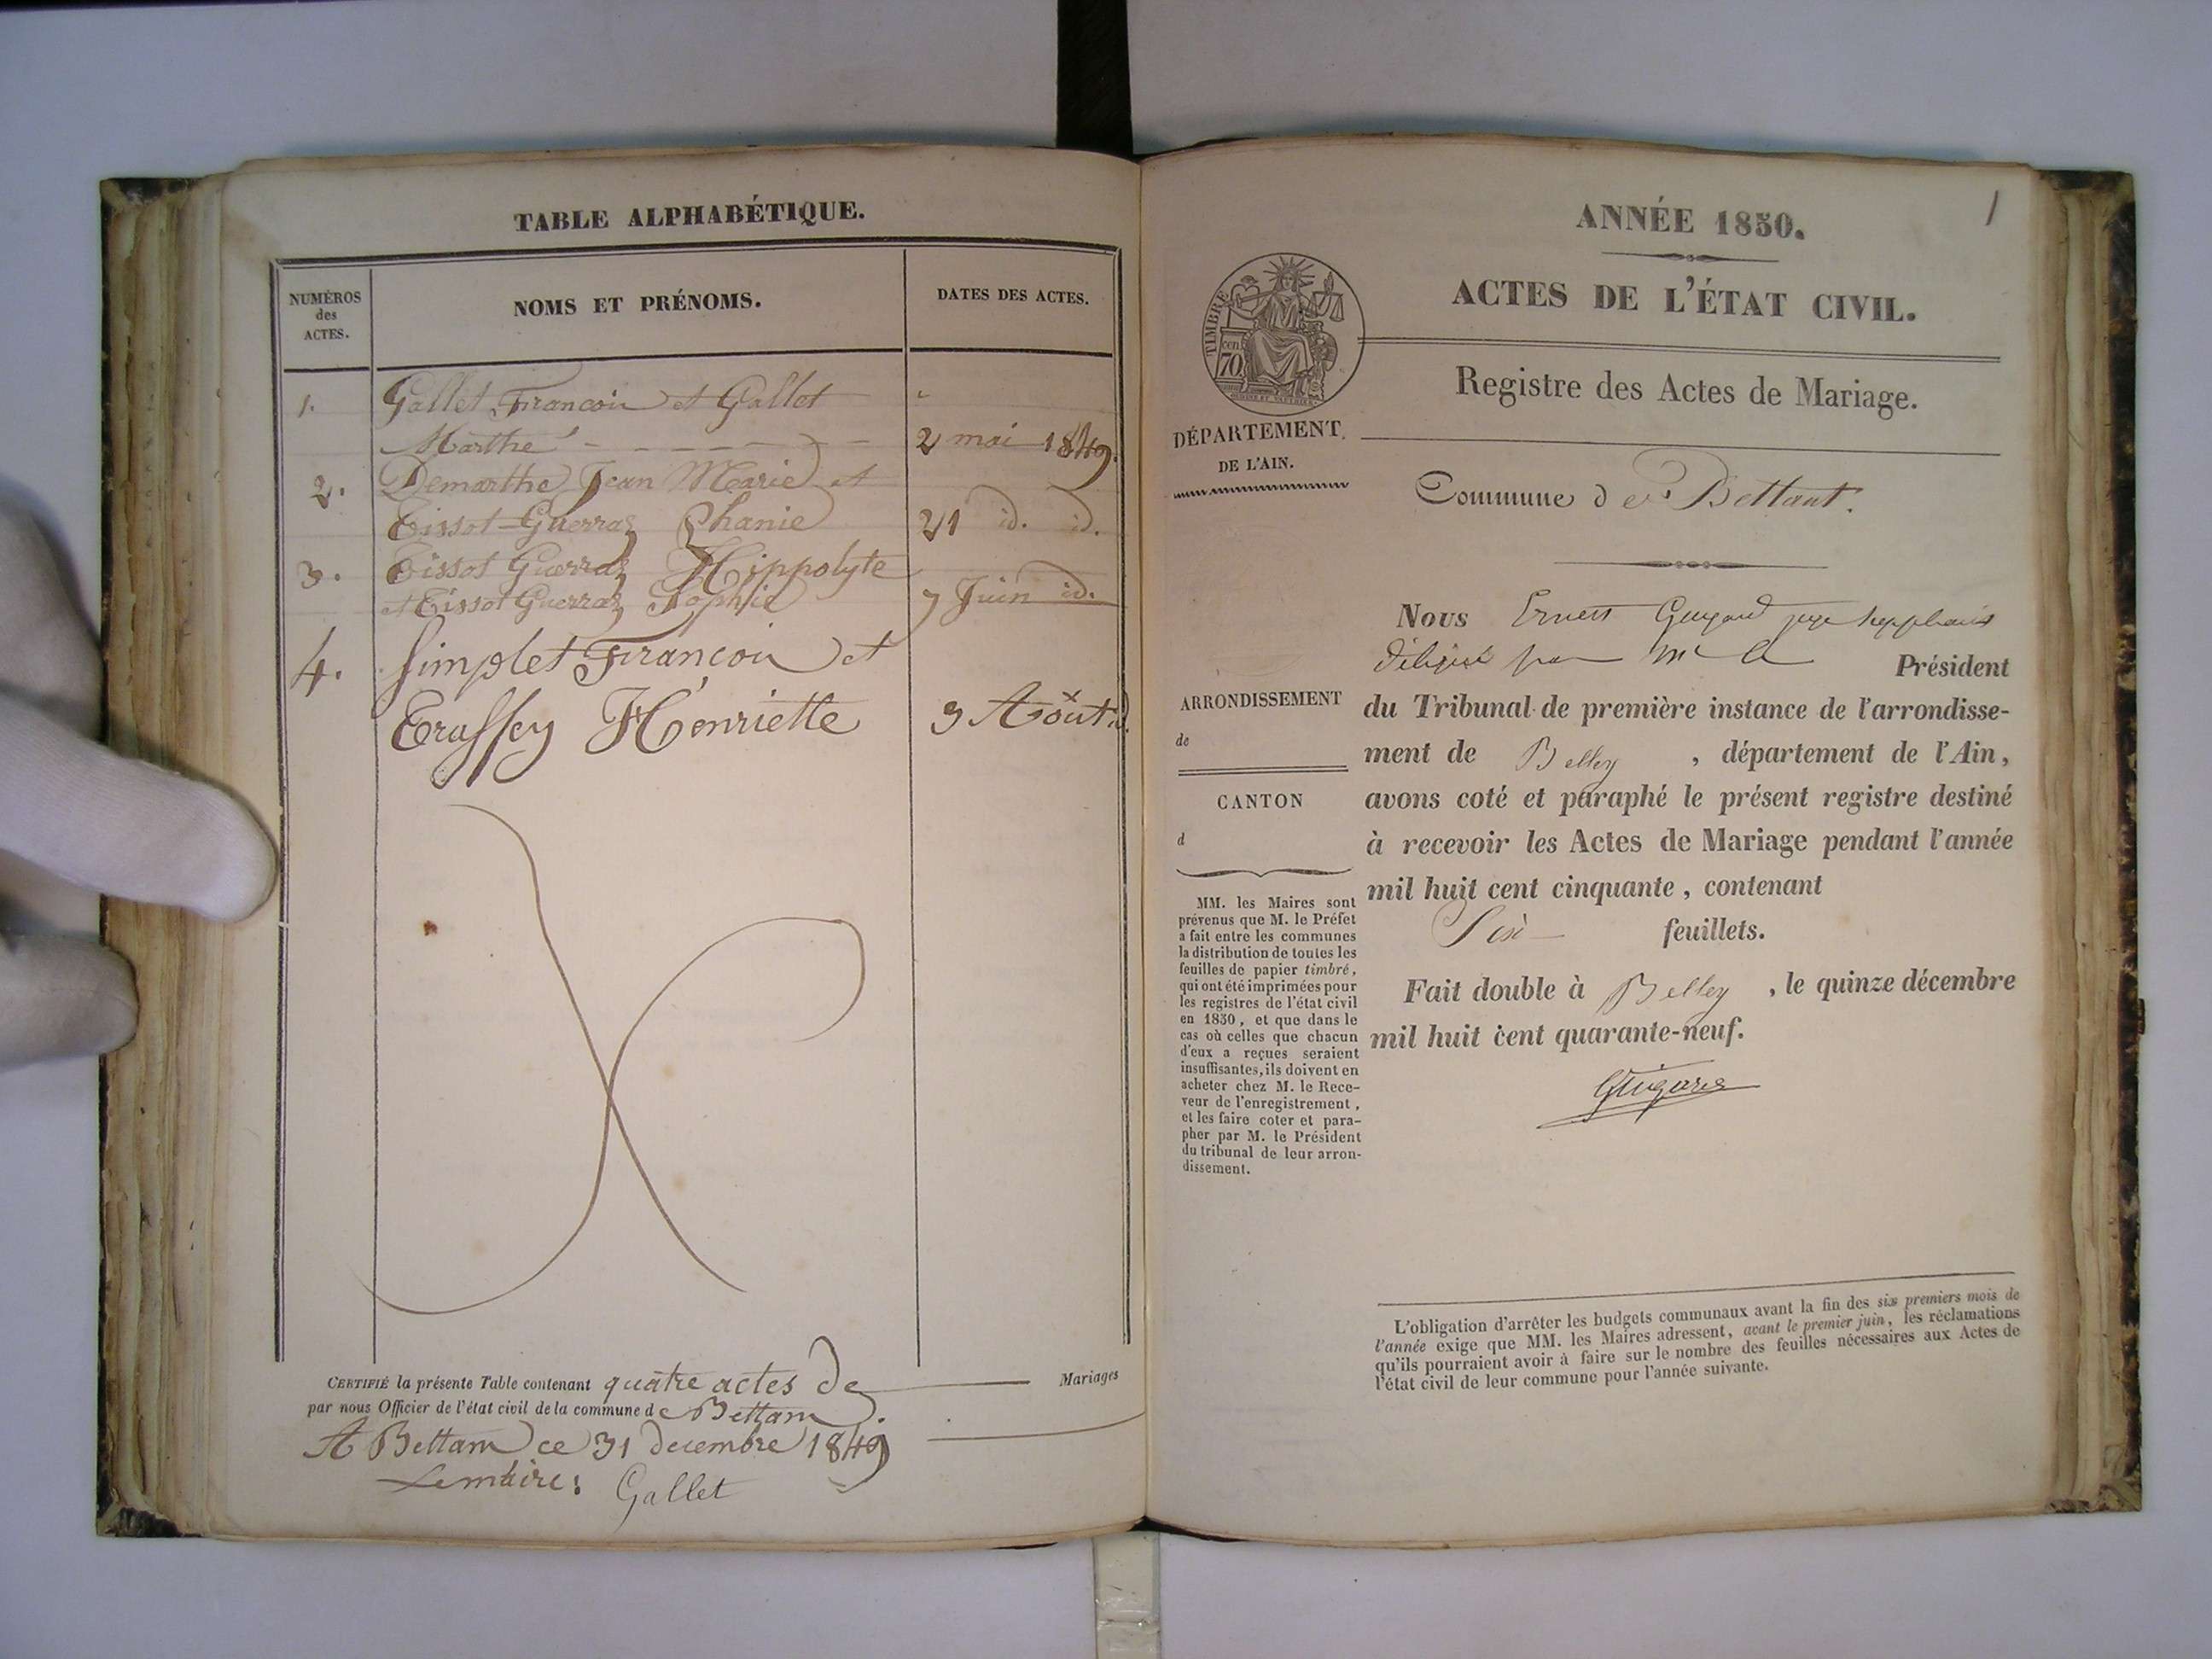 TABLE ALPHABÉTIQUE.
NUMÉROS
des
ACTES.
NOMS ET PRÉNOMS.
DATES DES ACTES.
1. Gallet François et Gallet
Marthe 2 mai 1849.
2. Demarthe Jean Marie et
Tissot-Guerraz Phanie 21 id. id.
3. Tissot Guerraz Hippolyte
et Tissot Guerraz Sophie 7 Juin id.
4. Simplet François et
Trassey Henriette 9 Août id.
CERTIFIÉ la présente Table contenant quatre actes de Mariages
par nous Officier de l'état civil de la commune de Bettant.
A Bettant ce 31 decembre 1849
Le maire: Gallet
1
ANNÉE 1850.
ACTES DE L'ÉTAT CIVIL.
Registre des Actes de Mariage.
TIMBRE
70 cen
DÉPARTEMENT
DE L'AIN.
Commune de Bettant.
Nous Ernest juge suppléant
délégué par Mr le Président
du Tribunal de première instance de l'arrondisse-
ment de Belley, département de l'Ain,
avons coté et paraphé le présent registre destiné
à recevoir les Actes de Mariage pendant l'année
mil huit cent cinquante, contenant
Six feuillets.
Fait double à Belley, le quinze décembre
mil huit cent quarante-neuf.
ARRONDISSEMENT
de
CANTON
d
MM. les Maires sont
prévenus que M. le Préfet
a fait entre les communes
la distribution de toutes les
feuilles de papier timbré,
qui ont été imprimées pour
les registres de l'état civil
en 1850, et que dans le
cas où celles que chacun
d'eux a reçues seraient
insuffisantes, ils doivent en
acheter chez M. le Rece-
veur de l'enregistrement,
et les faire coter et para-
pher par M. le Président
du tribunal de leur arron-
dissement.
L'obligation d'arrêter les budgets communaux avant la fin des six premiers mois de
l'année exige que MM. les Maires adressent, avant le premier juin, les réclamations
qu'ils pourraient avoir à faire sur le nombre des feuilles nécessaires aux Actes de
l'état civil de leur commune pour l'année suivante.